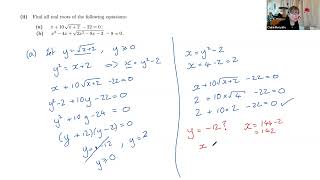 (ii) Find all real roots of the following equations:
(a) x + 10√(x + 2) − 22 = 0;
(b) x² − 4x + √(2x² − 8x − 3) − 9 = 0.
(a) Let y = √(x+2), y ⩾ 0
y² = x+2 ⇒ x = y²−2
x + 10√(x+2) − 22 = 0
y²−2 + 10y − 22 = 0
y² + 10y − 24 = 0
(y + 12)(y − 2) = 0
y = −12, y = 2
y ⩾ 0
x = y² − 2
x = 4 − 2 = 2
x + 10√(x+2) − 22 = 0
2 + 10×√4 − 22 = 0
2 + 10×2 − 22 = 0 ✓
y = −12? x = 144 − 2
= 142
x